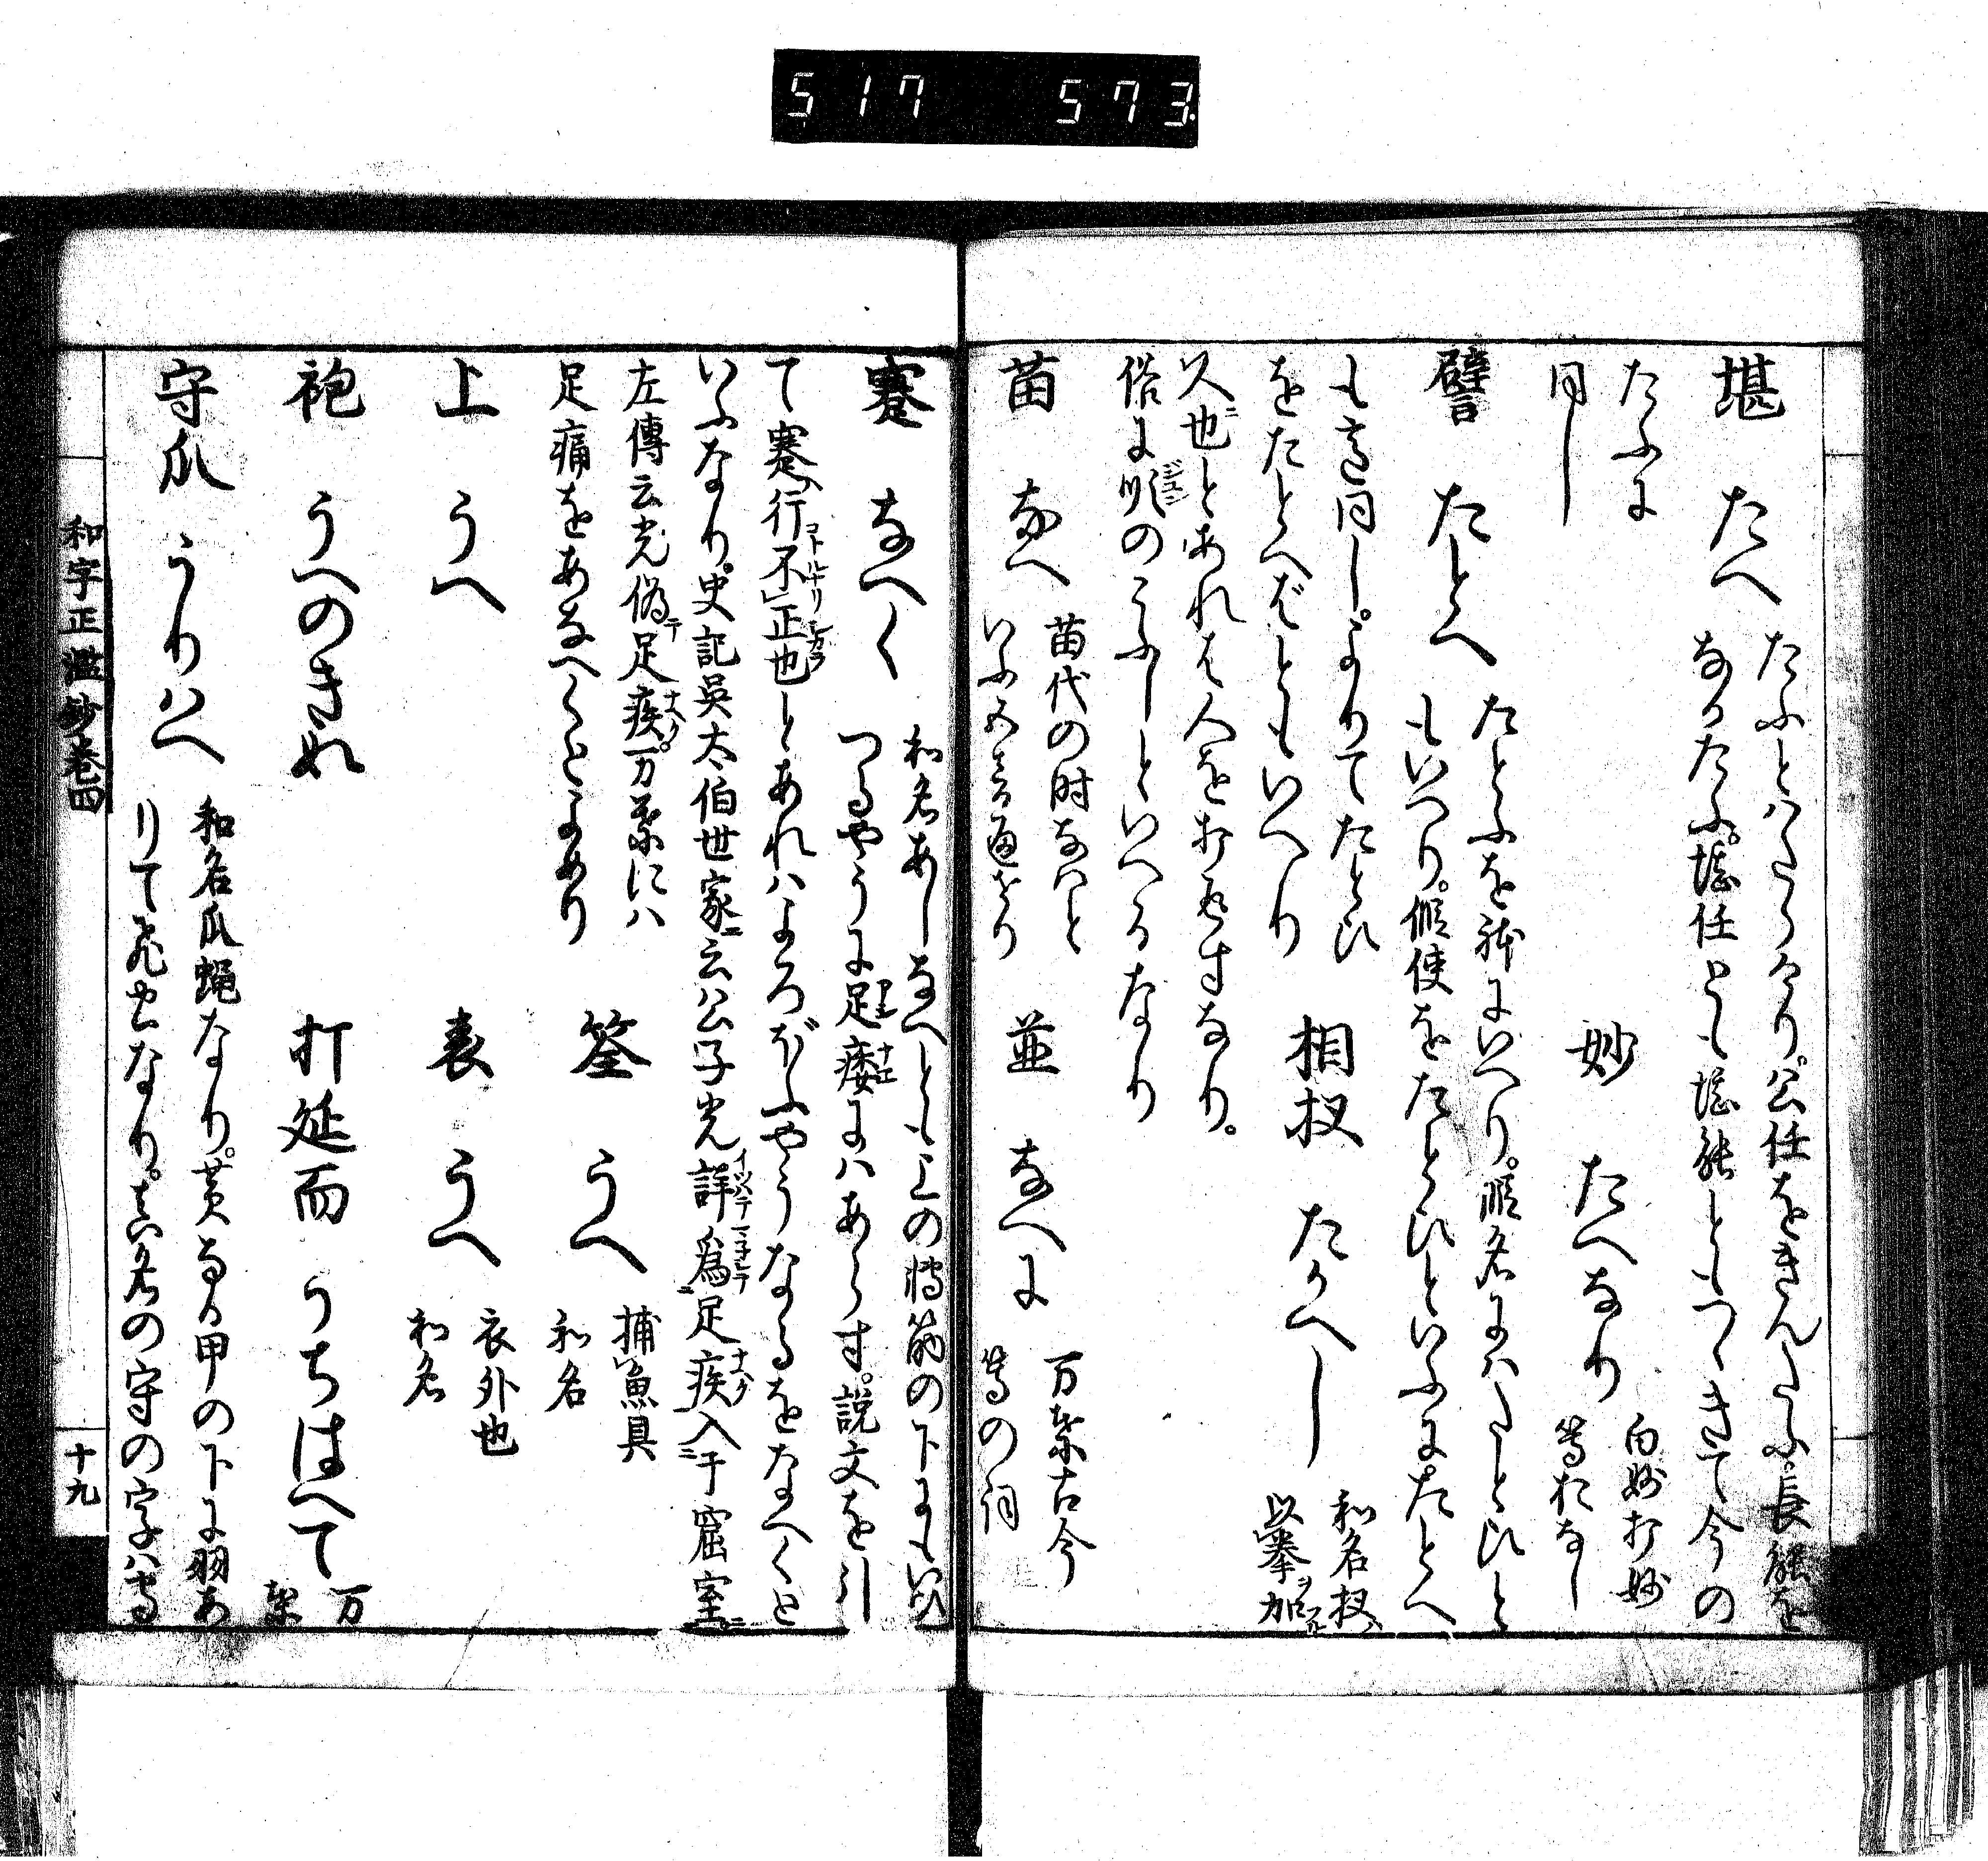 517 573
堪 たへ たふとはたらけり。公任をきんたふ。長能を
なかたふ。堪任とも堪能ともつゝきて今の
たふに
同し
妙 たへなり 白妙打妙
等おなし
譬 たとへ たとふを躰にいへり。順名にはたとひと
もいへり。假使をたとひといふにたとへ
も意同し。よりてたとひ
をたとへばともいへり
相扠 たかへし 和名扠ハ
以拳ヲ加フル
人ニ也とあれは人をお西すなり。
俗に順のこふしといへるなり
苗 なへ 苗代の時なはと
いふ五音通せり
並 なへに 万葉古今
等の詞
蹇 なへく 和名あしなへとも上の膞筋の下にもいひ
つるやうに足痿にはあらす。説文を引
て蹇ハ行不正也とあれはよろぼふやうなるをなへくと
いふなり。史記呉太伯世家ニ云公子光詳為足疾入于窟室
左傳云光偽テ足疾。万葉には
足痛をあなへくとよめり
筌 うへ 捕魚具
和名
上 うへ
表 うへ 衣外也
和名
袍 うへのきぬ
打延而 うちはへて 万
葉
守瓜 うりはへ 和名瓜蝿なり。黄なる甲の下に羽あ
りて飛虫なり。真名の守の字は守
和字正濫鈔巻四
十九